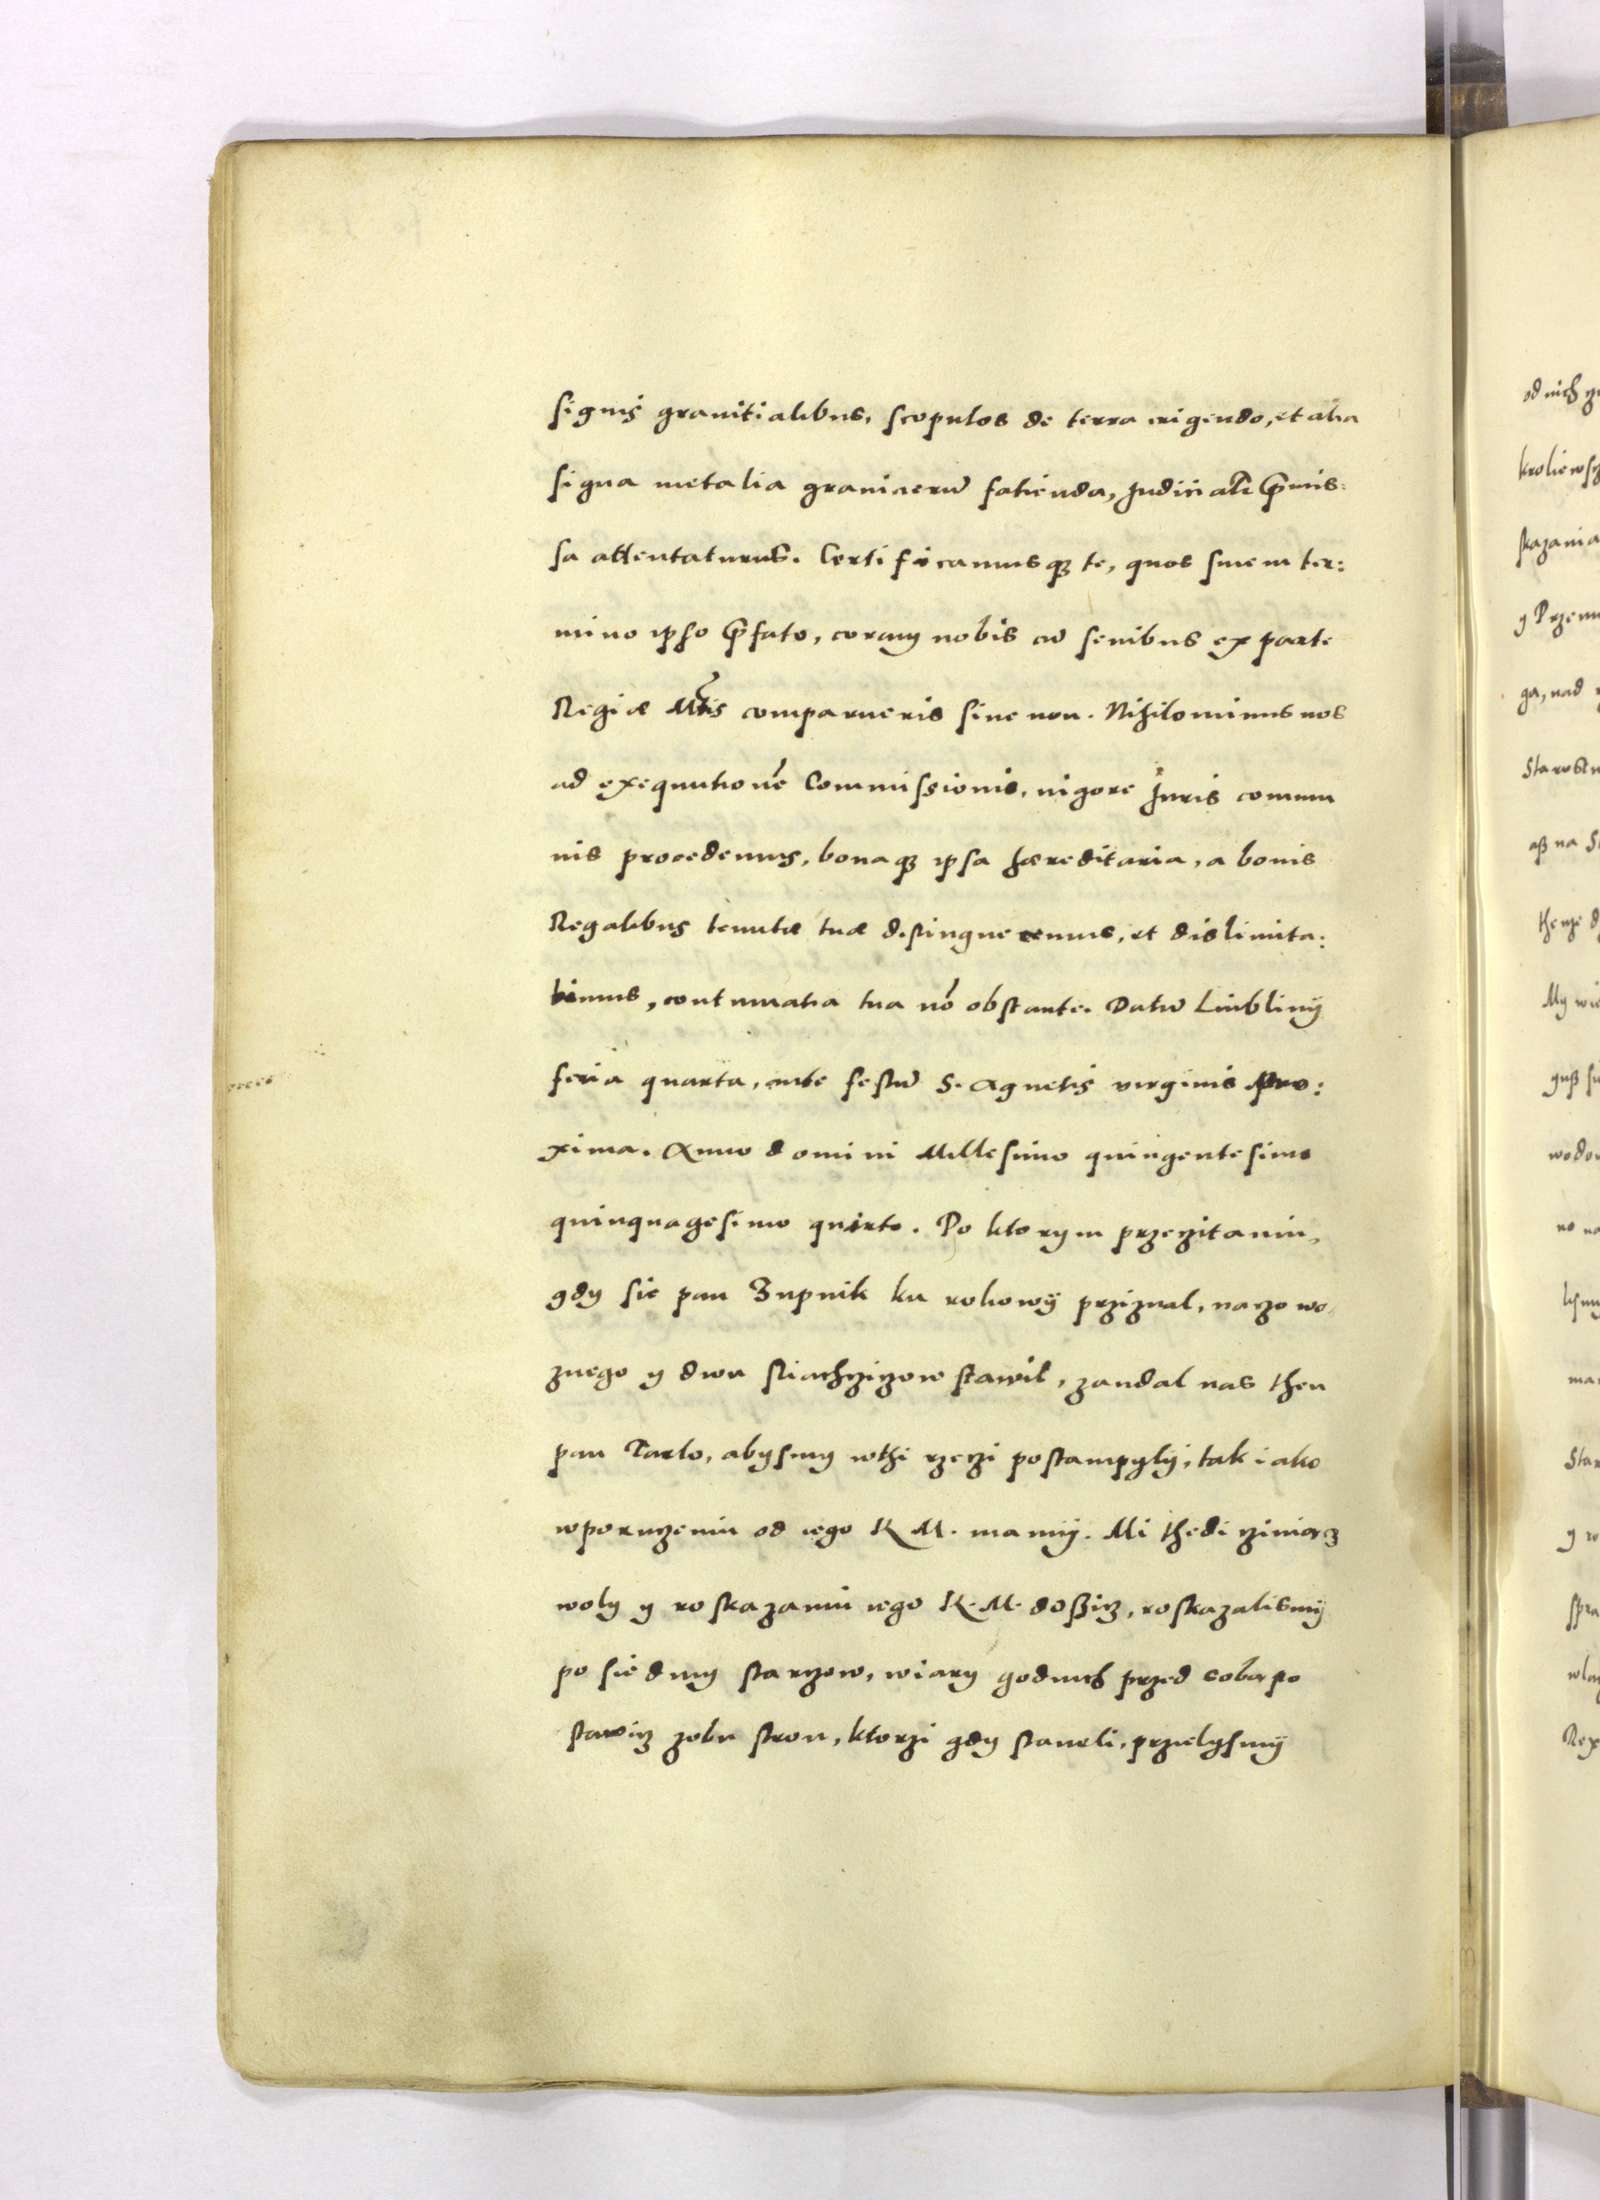 signis granitialibus, scopulos de terra erigendo, et alia
signa metalia granicerũ fatienda, Judicialr̃ p̃mis:
sa attentaturus. Certificamusq₃ te, quos siue in ter:
mino ipso p̃fato, coram nobis cũ senibus ex parte
Regiæ Mt̃is comparueris siue non. Nihilominus nos
ad exequutionẽ Commissionis, uigore Juris commu
nis procedemus, bonaq₃ ipsa hæreditaria, a bonis
Regalibus tenutæ tuæ distingueremus, et dislimita:
bimus, contumatia tua nõ obstante. Datũ Liublinÿ
feria quarta, ante festũ S. Agnetis virginis pro:
xima. Anno domini Millesimo quingentesimo
quinquagesimo quarto. Po ktorym przeczitaniu,
gdy sie pan Zupnik ku rokowÿ prziznal, naczo wo
znego y dwu sliachcziczow stawil, zandal nas then
pan Tarlo, abysmy wthi rzeczi postampylÿ, tak iako
wporuczeniu od iego K M. mamÿ. Mi thedi cziniacz
woly y roskazaniu iego K. M. doszicz, roskazalismÿ
po siedmy starczow, wiary godnich przed soba po
stawicz zobu stron, ktorzi gdy staneli, przielysmÿ
od nich
kroliewsz
skazania
y Przem
ga, nad
Starost
asz na S
thenze d
My wi
gusz si
wodo
no na
Star
spra
Rex